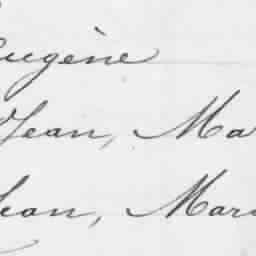 Eugène
Jean, Ma
Jean, Mar